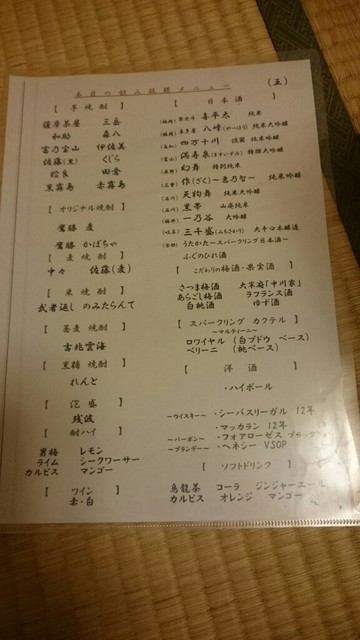 本日の飲み放題メニュー
(五)
【 芋焼酎 】
薩摩茶屋 三岳
和助 森八
富乃宝山 伊佐美
佐藤(黒) くじら
松良 田倉
黒霧島 赤霧島
【 オリジナル焼酎 】
鷹勝 麦
鷹勝 かぼちゃ
【 麦焼酎 】
中々 佐藤(麦)
【 米焼酎 】
武者返し のみたらんて
【 蕎麦焼酎 】
吉兆雲海
【 黒糖焼酎 】
れんと
【 泡盛 】
残波
【 酎ハイ 】
男梅 レモン
ライム シークワーサー
カルピス マンゴー
【 ワイン 】
赤・白
【 日本酒 】
喜平太 純米
八峰 純米大吟醸
(高知) 四万十川 純米吟醸
(富山) 満寿泉(ますいずみ) 特撰大吟醸
幻舞 特別純米
作(ざく)～恵乃智～ 純米吟醸
天狗舞 純米大吟醸
黒帯 山廃純米
一乃谷 大吟醸
(岐阜) 三千盛(みちさかり) 大辛口本醸造
(京都) うたかた～スパークリング日本酒～
ふぐのひれ酒
【 こだわりの梅酒・果実酒 】
さつま梅酒 大宰府「中川家」
あらごし梅酒 ラフランス酒
白桃酒 ゆず酒
【 スパークリング カクテル 】
～マルティーニ～
ロワイヤル (白ブドウ ベース)
ベリーニ (桃 ベース)
【 洋酒 】
・ハイボール
～ウイスキー～ ・シーバスリーガル 12年
・マッカラン 12年
～バーボン～ ・フォアローゼス ブラック
～ブランデー～ ・ヘネシー VSOP
【 ソフトドリンク 】
烏龍茶 コーラ ジンジャーエール
カルピス オレンジ マンゴー